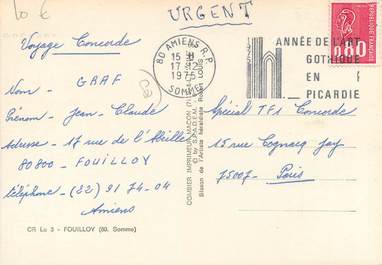 10 €
URGENT
Voyage Concorde
Nom - GRAF
Prénom - Jean-Claude
Adresse - 17 rue de l'Abeille
80800 - FOUILLOY
téléphone - (22) 91 74-04
Amiens
CR Lu 3 - FOUILLOY (80. Somme)
80 AMIENS R.P.
15 H
17-12
1975
SOMME
ANNÉE DE L'ART
GOTHIQUE
EN
PICARDIE
0,80
COMBIER IMPRIMEUR MACON
© by S.P.A.D.E.M.
Blason de l'Artiste héraldiste Robert LOUIS
Spécial TF1 Concorde
15 rue Cognacq Jay
75007 - Paris